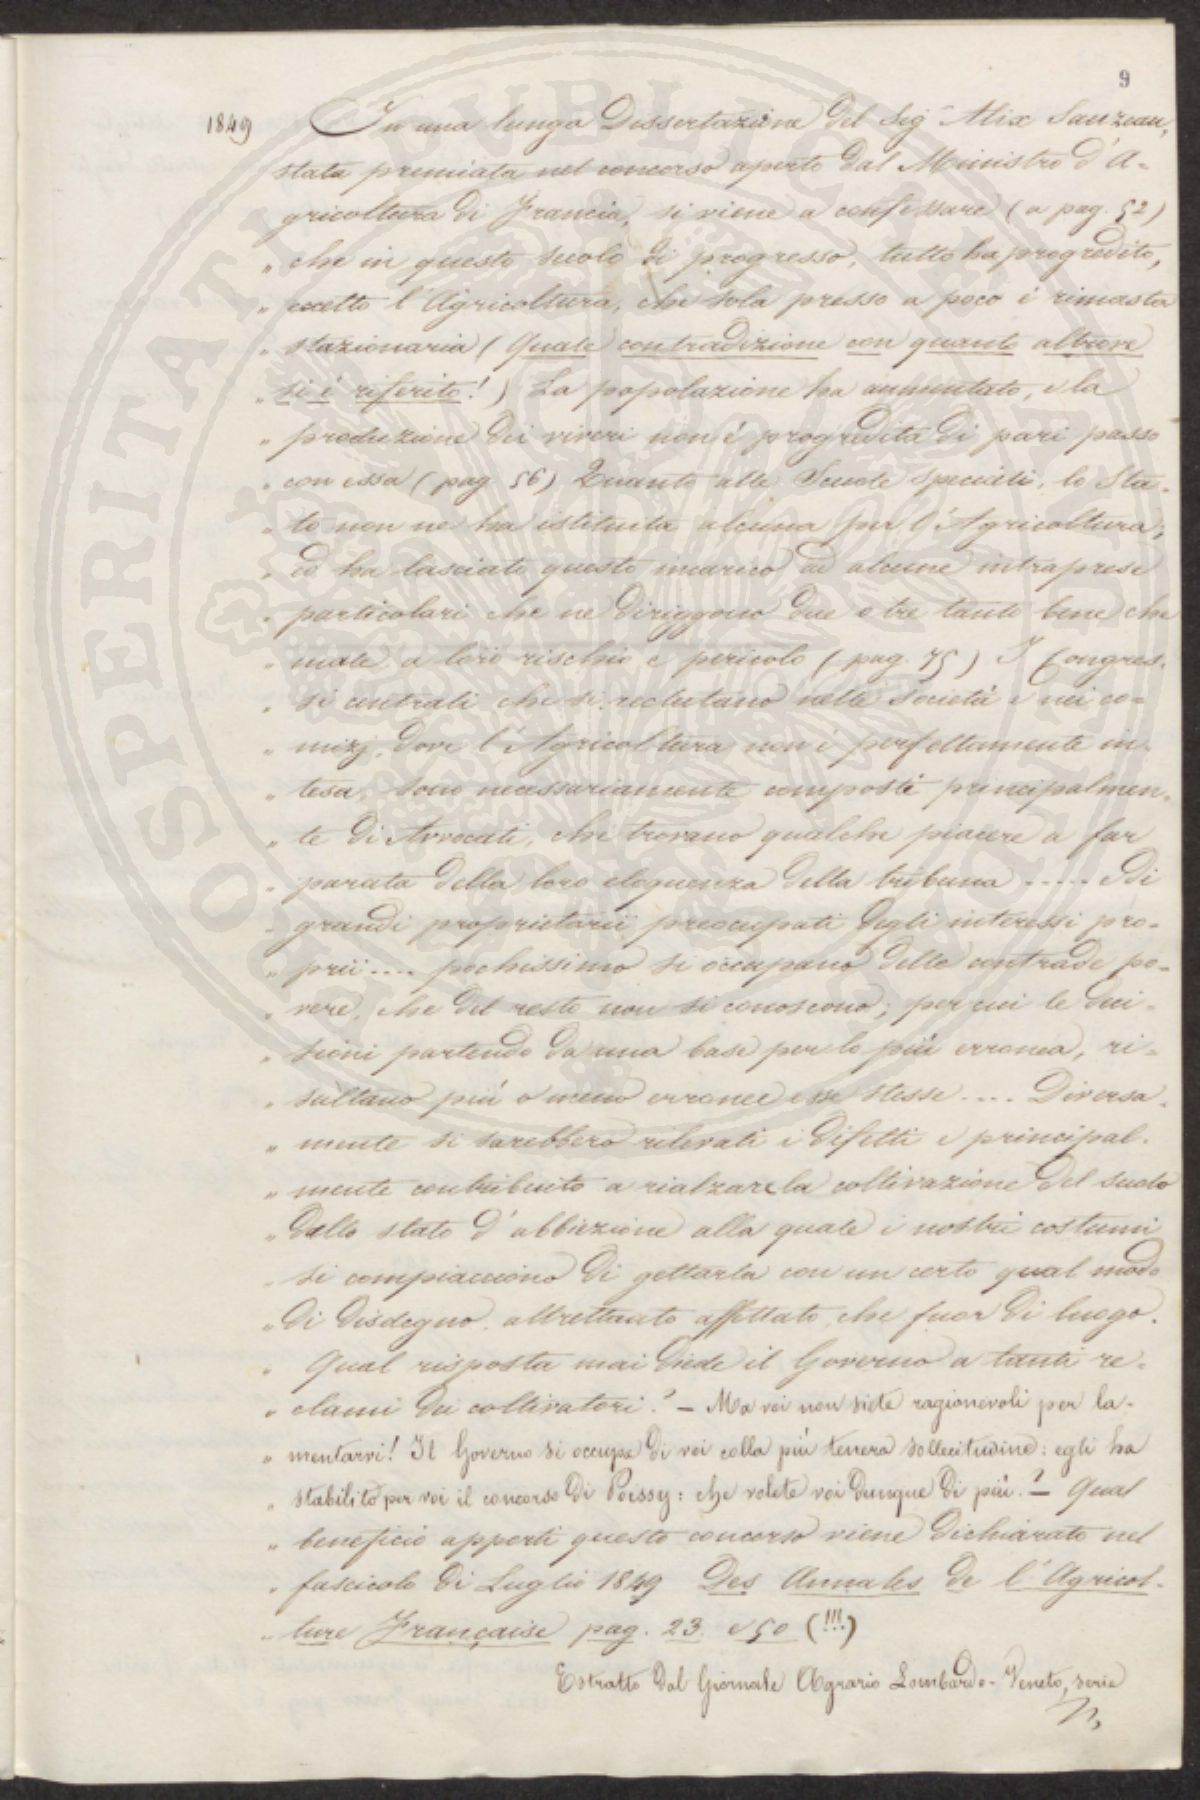 9
1849 In una lunga Dissertazione del Sig.r Alix Sauzeau,
stata premiata nel concorso aperto dal Ministro d'A-
gricoltura di Francia, si viene a confessare (a pag. 52)
" che in questo secolo di progresso, tutto ha progredito,
" eccetto l'Agricoltura, che sola presso a poco é rimasta
" stazionaria (Quale contradizione con quanto altrove
" si é riferito!) La popolazione ha aumentato, e la
" produzione dei viveri non é progredita di pari passo
" con essa (pag 56) Quanto alle Scuole speciali, lo Sta-
" to non ne ha istituita alcuna per l'Agricoltura;
" ed ha lasciato questo incarico ad alcune intraprese
" particolari che ne diriggono due o tre tanto bene che
" male a loro rischio e pericolo (pag. 75) I Congres-
" si centrali che si reclutano nelle società e nei co-
" mizj, dove l'Agricoltura non é perfettamente in-
" tesa, sono necessariamente composti principalmen-
" te di Avvocati, che trovano qualche piacere a far
" parata della loro eloquenza della tribuna ..... e di
" grandi proprietarii preoccupati degli interessi pro-
" prii .... pochissimo si occupano delle contrade po-
" vere, che del resto non si conoscono; per cui le deci-
" sioni partendo da una base per lo piú erronea, ri-
" sultano piú o meno erronee esse stesse .... Diversa-
" mente si sarebbero rilevati i difetti e principal-
" mente contribuito a rialzare la coltivazione del suolo
" dallo stato d'abbiezione alla quale i nostri costumi
" si compiacciono di gettarla con un certo qual modo
" di disdegno, altrettanto affettato, che fuor di luogo.
" Qual risposta mai diede il Governo a tanti re-
" clami dei coltivatori? – Ma voi non siete ragionevoli per la-
" mentarvi! Il Governo si occupa di voi colla piú tenera sollecitudine: egli ha
" stabilito per voi il concorso di Poissy: che volete voi dunque di piú? – Qual
" beneficio apporti questo concorso viene dichiarato nel
" fascicolo di Luglio 1849 Des Annales de l'Agricol-
" ture Française pag. 23. e 50 (!!!)
Estratto dal Giornale Agrario Lombardo-Veneto, serie